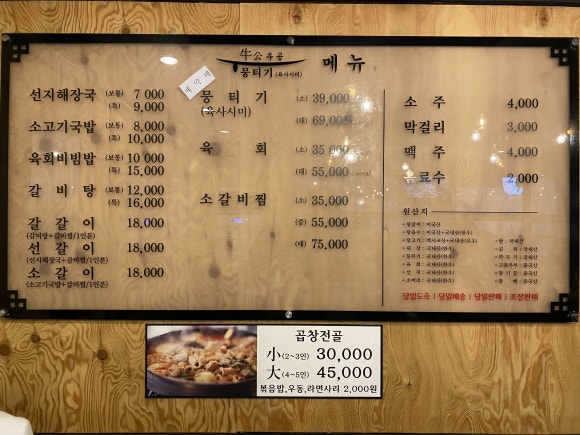 牛公유공
뭉터기(육사시미)
메뉴
예약제
선지해장국 (보통) 7 000
(특) 9,000
소고기국밥 (보통) 8,000
(특) 10,000
육회비빔밥 (보통) 10 000
(특) 15,000
갈비탕 (보통) 12,000
(특) 16,000
갈갈이 18,000
(갈비탕+갈비찜/1인분)
선갈이 18,000
(선지해장국+갈비찜/1인분)
소갈이 18,000
(소고기국밥+갈비찜/1인분)
뭉티기 (소) 39,000
(육사시미)
(대) 69,000
육회 (소) 35 000
(대) 55,000
소갈비찜 (소) 35,000
(중) 55,000
(대) 75,000
소주 4,000
막걸리 3,000
맥주 4,000
음료수 2,000
원산지
당일도축 | 당일배송 | 당일판매 | 포장판매
곱창전골
小(2~3인) 30,000
大(4~5인) 45,000
볶음밥,우동,라면사리 2,000원